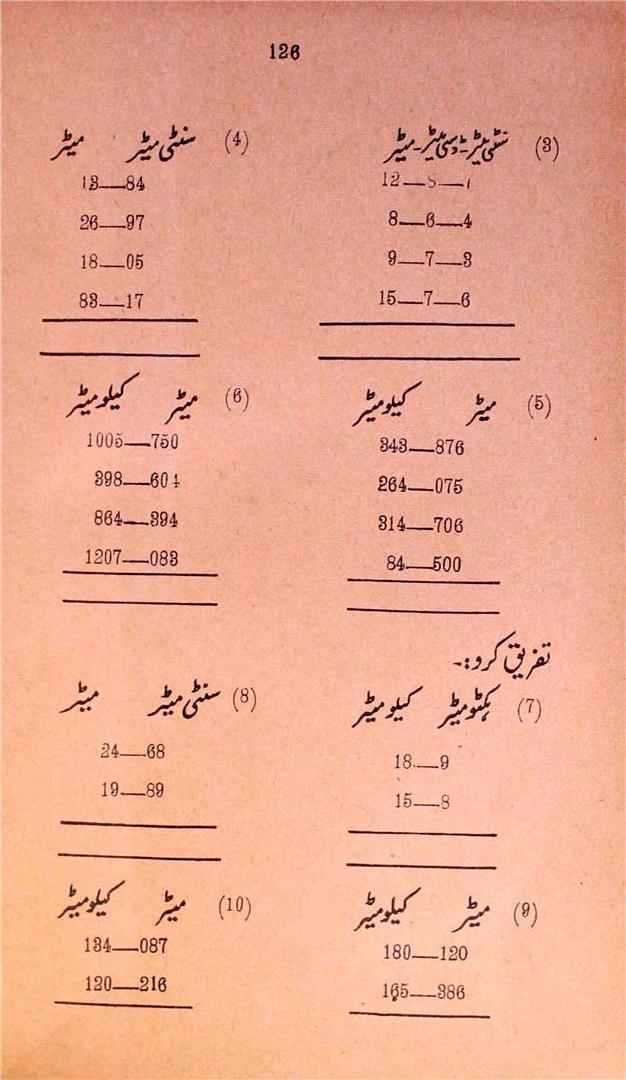 126
(3) سنٹی میٹر - ڈسی میٹر - میٹر
12—8—7
8—6—4
9—7—3
15—7—6
(4) سنٹی میٹر میٹر
13—84
26—97
18—05
83—17
(5) میٹر کیلومیٹر
343—876
264—075
314—706
84—500
(6) میٹر کیلومیٹر
1005—750
398—604
864—394
1207—083
تفریق کرو:-
(7) ہکٹومیٹر کیلومیٹر
18—9
15—8
(8) سنٹی میٹر میٹر
24—68
19—89
(9) میٹر کیلومیٹر
180—120
165—386
(10) میٹر کیلومیٹر
134—087
120—216